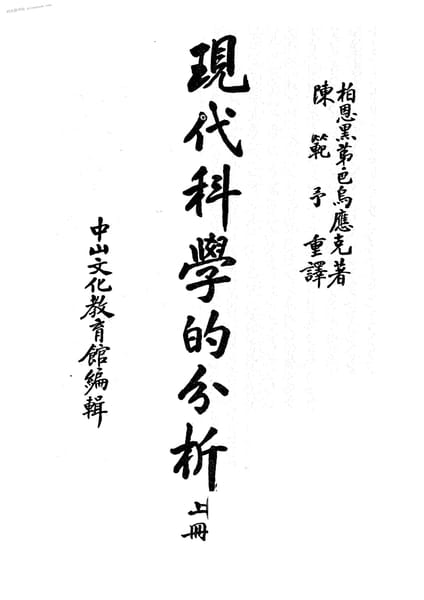 柏恩黑第·巴烏應克著
陳範予重譯
現代科學的分析
上冊
中山文化教育館編輯